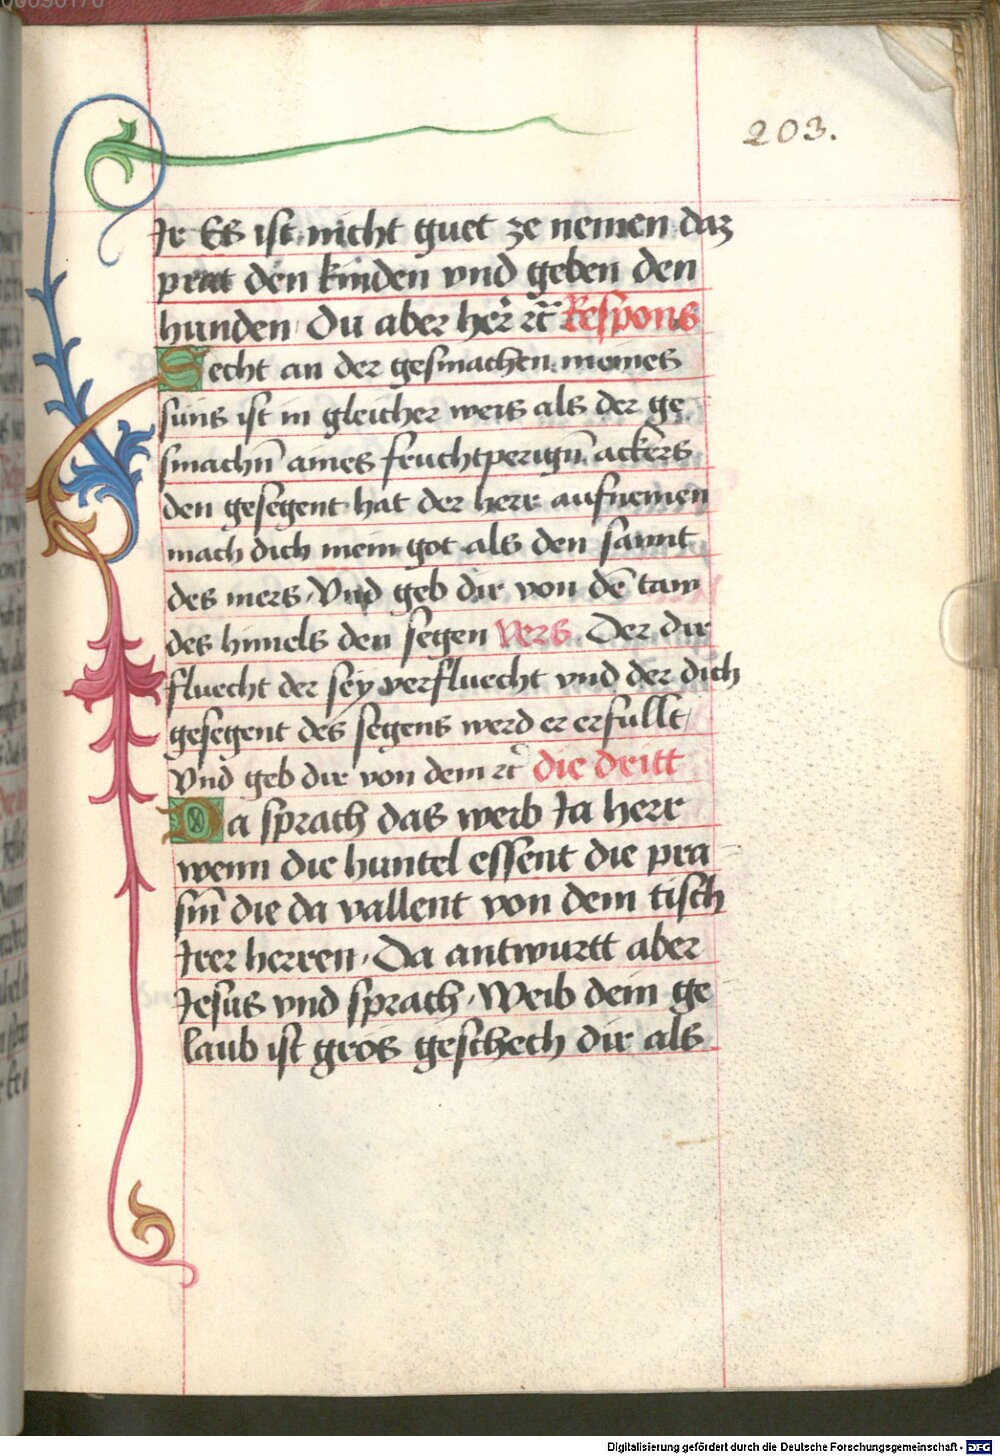 203.
Jr Es ist nicht guet ze nemen daz
prat den kinden vnd geben den
hunden Du aber her rc̄ Respons
Secht an der gesmachen meines
suns ist in gleicher weis als der ge
smachn̄ aines fruchtperign̄ ackers
den gesegent hat der herr aufnemen
mach dich mein got als den sannt
des mers Vnd geb dir von dē taw
des himels den segen Vers Der dir
fluecht der sey verfluecht vnd der dich
gesegent des segens werd er erfullt
Vnd geb dir von dem rc̄ die dritt
Da sprach das weib Ja herr
wenn die huntel essent die pra
sm̄ die da vallent von dem tisch
Irer herren Da antwurtt aber
Jesus vnd sprach Weib dein ge
laub ist gros geschech dir als
Digitalisierung gefördert durch die Deutsche Forschungsgemeinschaft - DFG